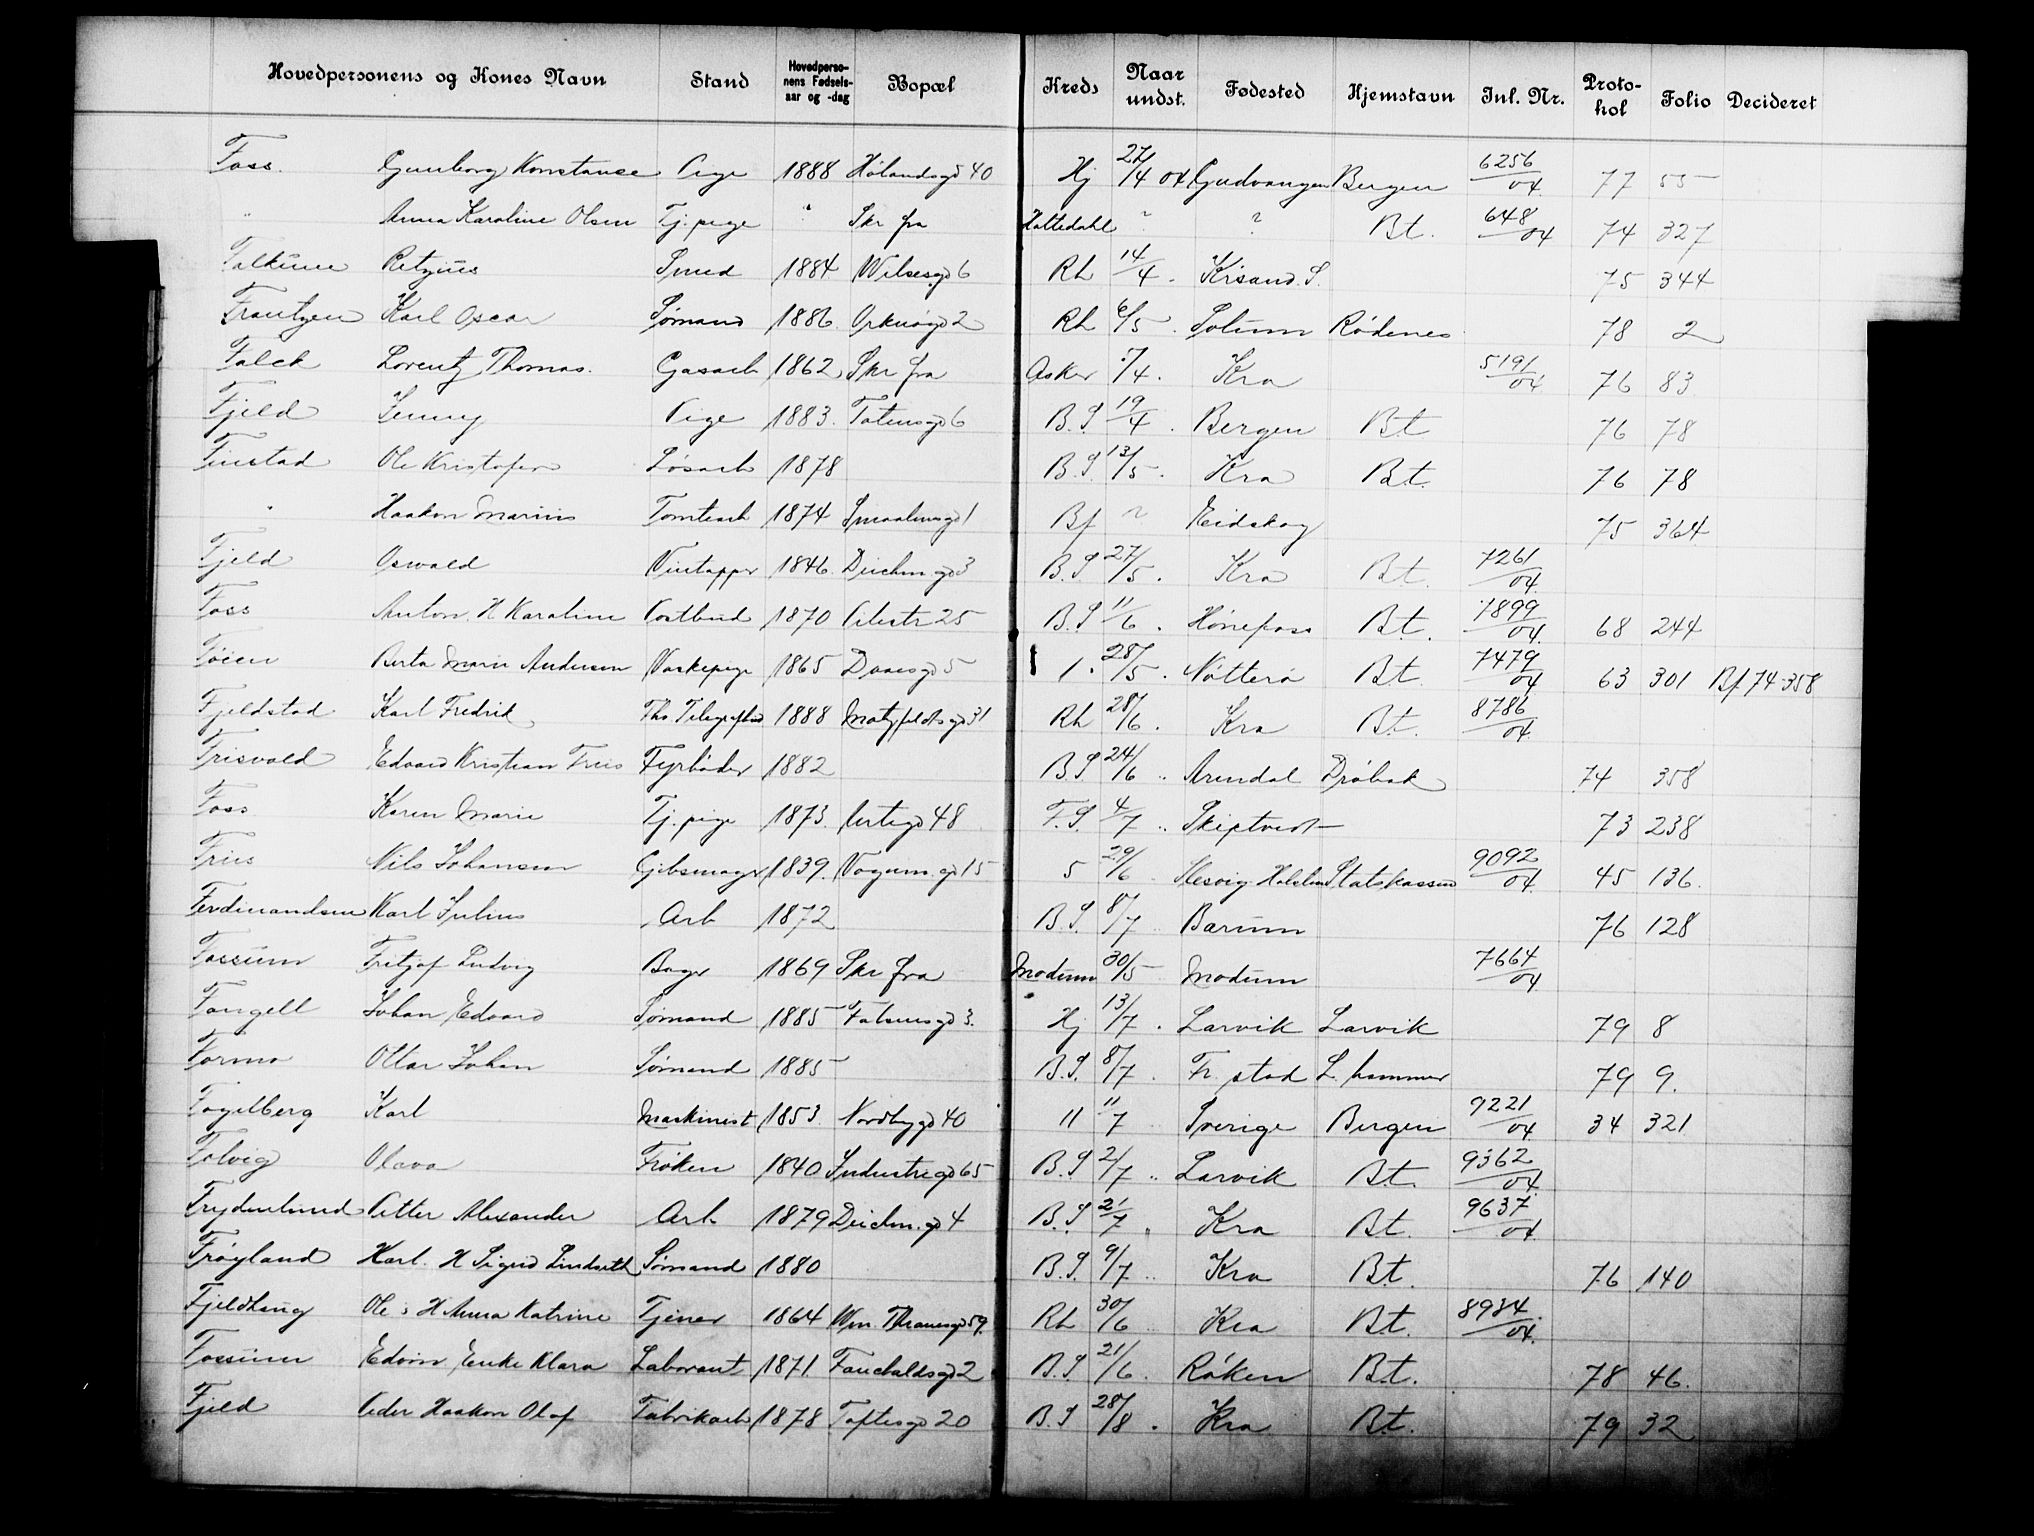 Hovedpersonens og Kones Navn Stand Hovedpersonens Fødselsaar og -dag Bopæl Kreds Naar undst. Fødested Hjemstavn Inl. Nr. Protokol Folio Decideret
Foss. Gunborg Konstanse Pige 1888 Hølandsgd 40 Hj 27/4 04 Gudvangen Bergen 6256/04 77 55
" Anna Karoline Olsen Tj. pige " Skr fra Hattedahl ? ? Bt. 648/04 74 327
Falkum Smed 1884 Wilsesgd 6 Rh 14/4 . Krsand. S. 75 344
Frantzen Karl Oscar Sømand 1886 Orknøgd 2 Rh 6/5 . Solum Rødenes 78 2
Falck Lorentz Thomas. Gasarb 1862 Skr fra Asker 7/4 . Kra 5191/04 76 83
Fjeld Jenny Pige 1883. Totensgd 6 B.S 19/4 . Bergen Bt 76 78
Finstad Ole Kristofer Løsarb 1878 B.S. 13/5 . Kra Bt. 76 78
" Haakon Marius Tomtearb 1874 Smaalensgd 1 Bf ? Eidskog 75 364
Fjeld Oswald Vintapper 1846. Deichm gd 3 B.S 27/5 . Kra Bt. 7261/04
Foss Anton. H Karoline Postbud 1870 Pilestr 25 B.S 11/6 . Hønefoss Bt. 7899/04 68 244
Føien Berta Marie Andersen Vaskepige 1865 Daaesgd 5 1. 28/5 . Nøtterø Bt. 7479/04 63 301 Bf 74-358
Fjeldstad Karl Fredrik Ths. Telegrafbud 1888 Motzfeldtsgd 31 Rh 28/6 . Kra Bt. 8786/04
Frisvold Edvard Kristian Friis Fyrbøder 1882 B.S 24/6 .. Arendal Drøbak 74 358
Foss Karen Marie Tj. pige 1873. Urtegd 48 F.S. 4/7 .. Skiptvedt 73 238
Friis Nils Johansen Gibsmager 1839. Vognm. gd 15 5 29/6 . Slesvig-Holsten Statskassen 9092/04 45 136.
Ferdinandsen Karl Julius Arb 1872 B.S. 8/7 .. Bærum 76 128
Fossum Fritjof Ludvig Bager 1869 Skr fra Modum 30/5 Modum 7664/04
Fangell Johan Edvard Sømand 1885 Falsensgd 3. Hj 13/7 . Larvik Larvik 79 8
Formo Ottar Johan Sømand 1885 B.S. 8/7 . Fr. stad L. hammer 79 9.
Fogelberg Karl Maskinist 1853. Nordbygd 40 11 11/7 Sverige Bergen 9221/04 34 321
Folvig Olava Frøken 1840 Industrigd 65 B.S 2/7 .. Larvik Bt. 9362/04
Frydenlund Petter Alexander Arb 1879 Deichm. gd 4 B.S 2/7 . Kra Bt. 9637/04
Frøyland Karl. H Sigrid Lindseth Sømand 1880 B.S. 9/7 .. Kra Bt. 76 140
Fjeldhaug Ole ; H Anna Katrine Tjener 1864 Wm. Thranesgd 59. Rh 30/6 .. Kra Bt. 8934/04
Fossum Edvin Enke Klara Laborant 1871. Fauchaldsgd 2 B.S. 21/6 . Røken Bt. 78 46.
Fjeld Peder Haakon Olaf Fabrikarb 1878 Toftesgd 20 B.S 28/8 . Kra Bt. 79 32